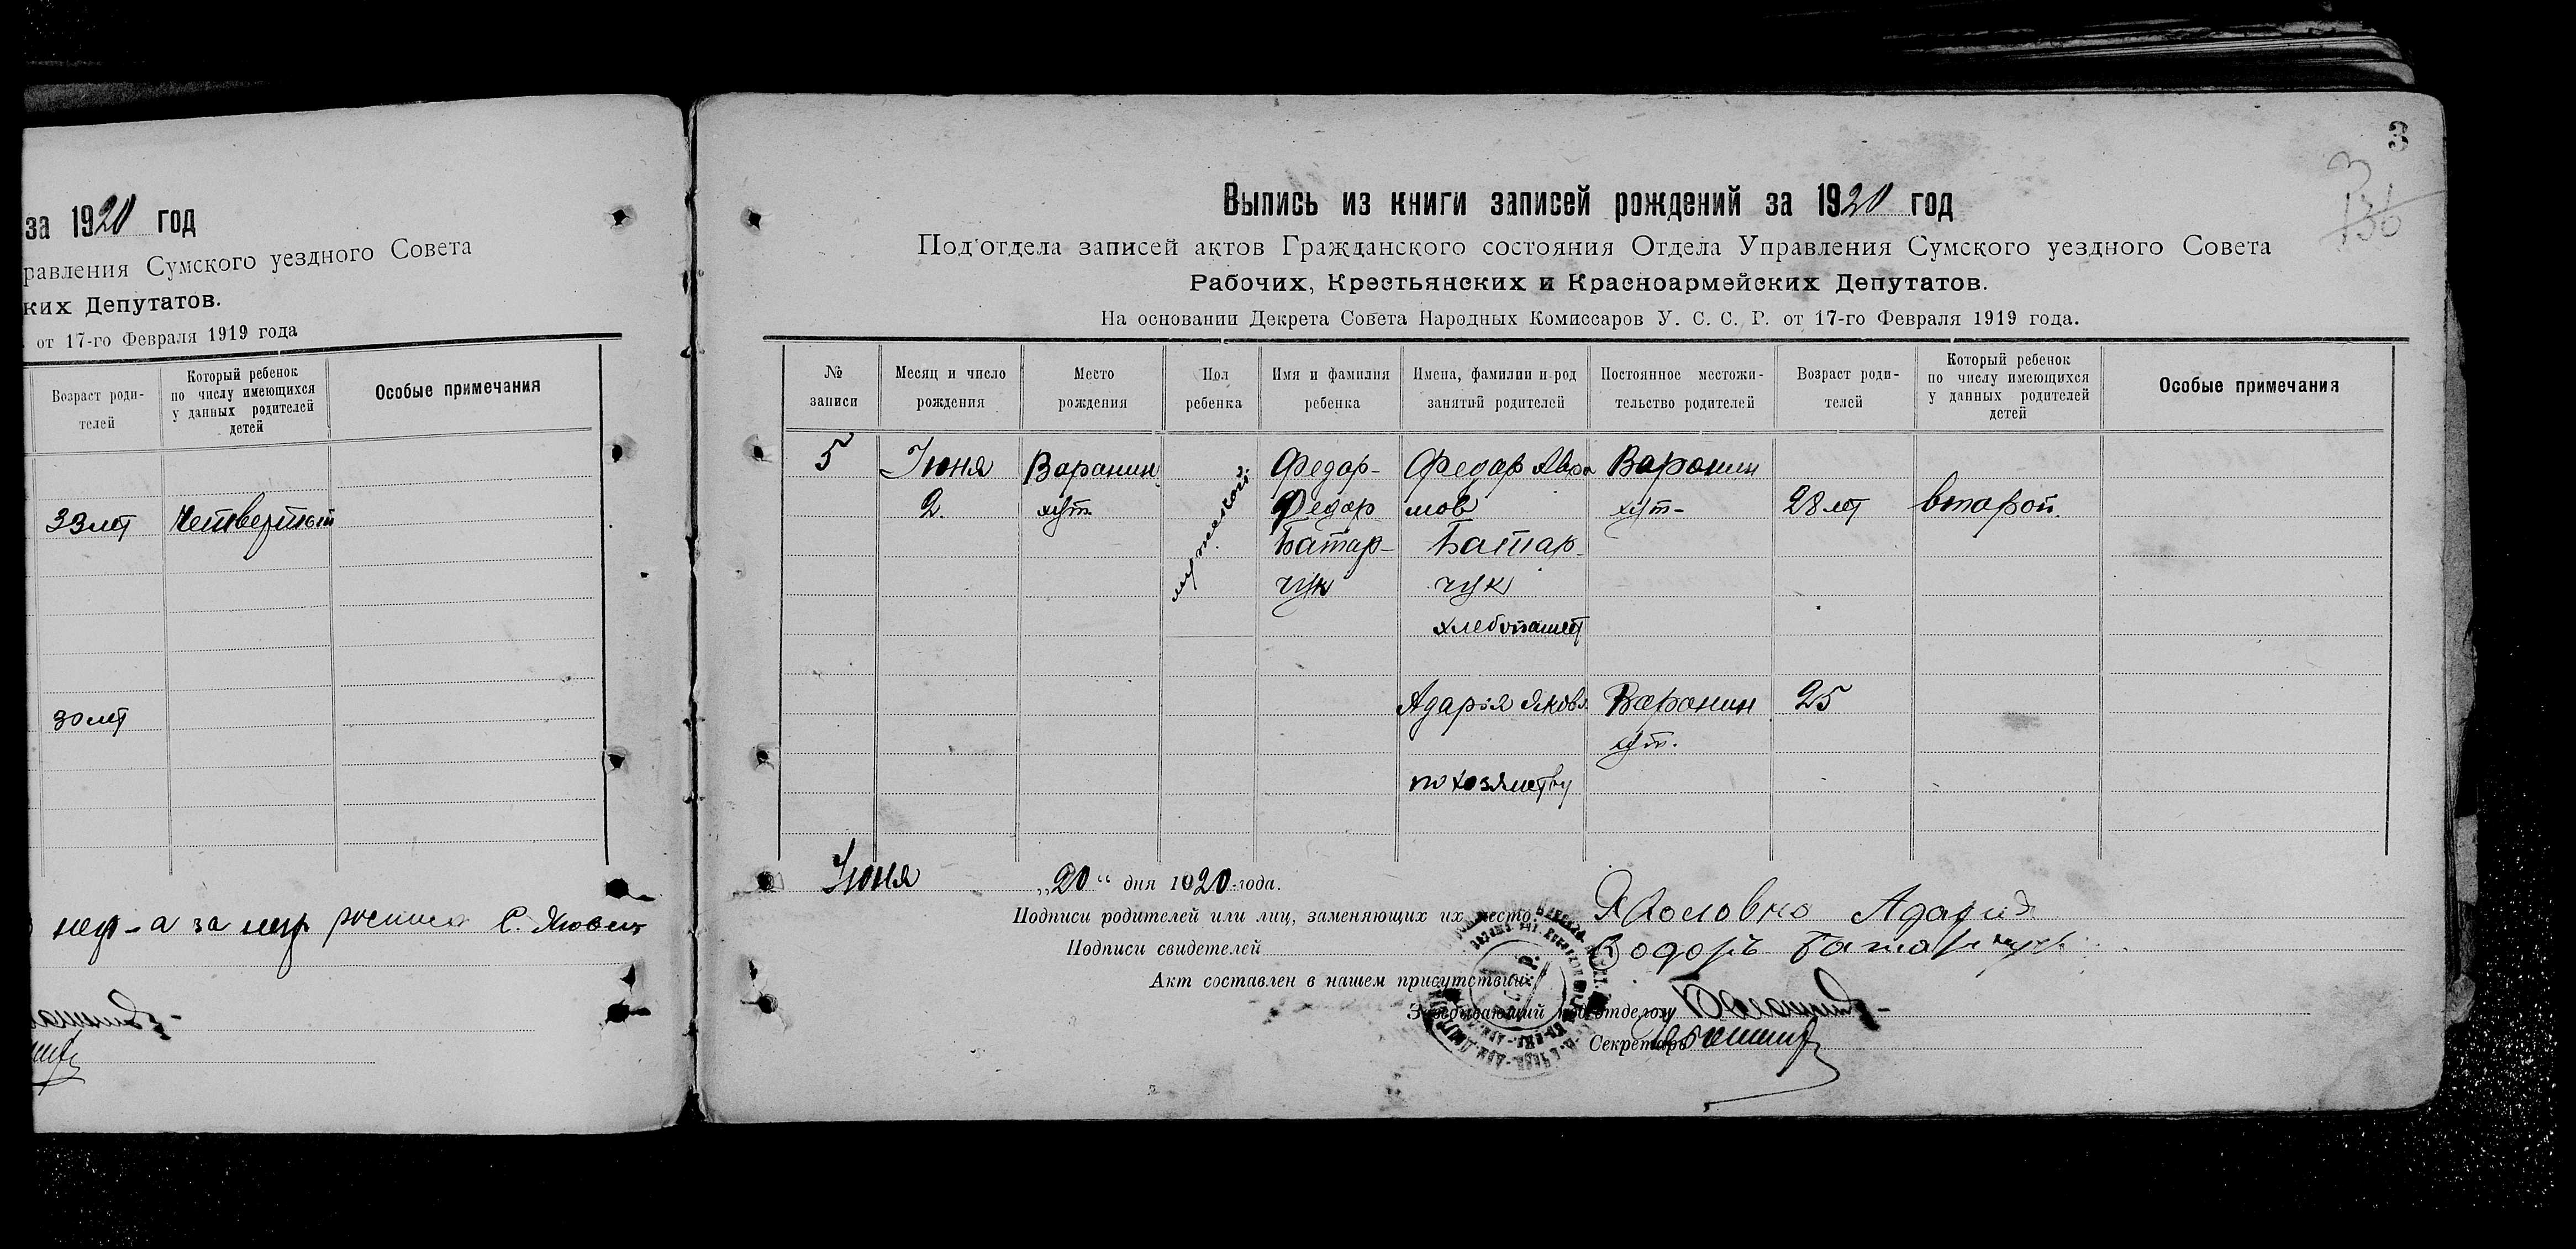 за 1920 год
равления Сумского уездного Совета
ких Депутатов.
от 17-го Февраля 1919 года
Возраст роди-
телей
Который ребенок
по числу имеющихся
у данных родителей
детей
Особые примечания
33 лет Четвертый
30 лет
за
3
3
136
Выпись из книги записей рождений за 1920 год
Под'отдела записей актов Гражданского состояния Отдела Управления Сумского уездного Совета
Рабочих, Крестьянских и Красноармейских Депутатов.
На основании Декрета Совета Народных Комиссаров У. С. С. Р. от 17-го Февраля 1919 года.
№
записи
Месяц и число
рождения
Место
рождения
Пол
ребенка
Имя и фамилия
ребенка
Имена, фамилии и род
занятий родителей
Постоянное местожи-
тельство родителей
Возраст роди-
телей
Который ребенок
по числу имеющихся
у данных родителей
детей
Особые примечания
5
Июня
2.
Варанин
хут.
мужской
Федар-
Федар
Батар-
чук
Федар Авра
мов
Батар-
чук
хлебопашец
Варанин
хут-
28 лет
второй.
Адарія Яковл.
по хозяйству
Варанин
хут.
25
Июня „20“ дня 1920-года.
Подписи родителей или лиц, заменяющих их место. Адарія
Подписи свидетелей Батарчук
Акт составлен в нашем присутствии:
Заведывающий под'отделом
Секретарь